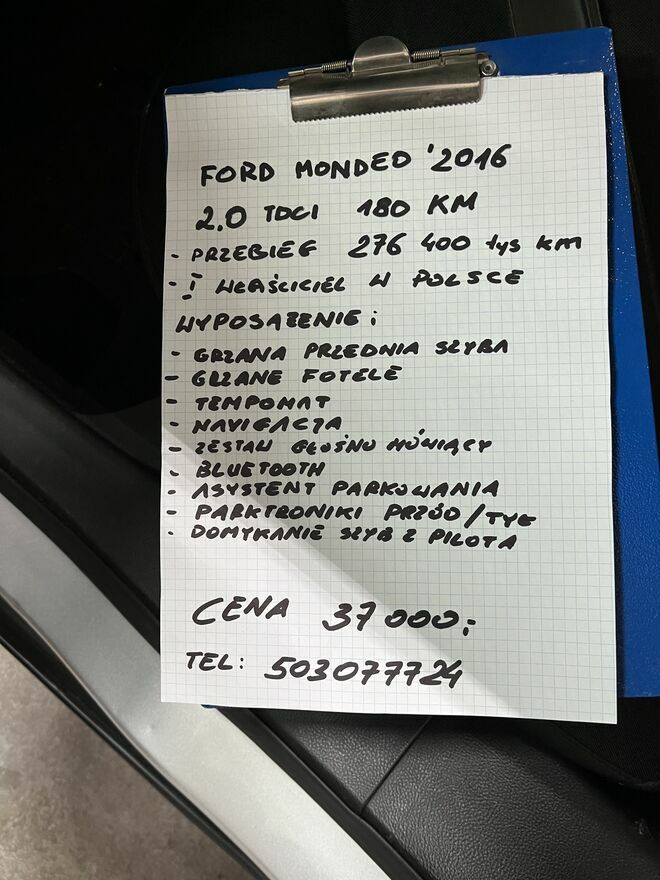 FORD MONDEO '2016
2.0 TDCI 180 KM
- PRZEBIEG 276 400 tys km
- I WŁAŚCICIEL W POLSCE
WYPOSAŻENIE:
- GRZANA PRZEDNIA SZYBA
- GRZANE FOTELE
- TEMPOMAT
- NAVIGACJA
- ZESTAW GŁOŚNO MÓWIĄCY
- BLUETOOTH
- ASYSTENT PARKOWANIA
- PARKTRONIKI PRZÓD/TYŁ
- DOMYKANIE SZYB Z PILOTA
CENA 37 000,-
TEL: 503077724